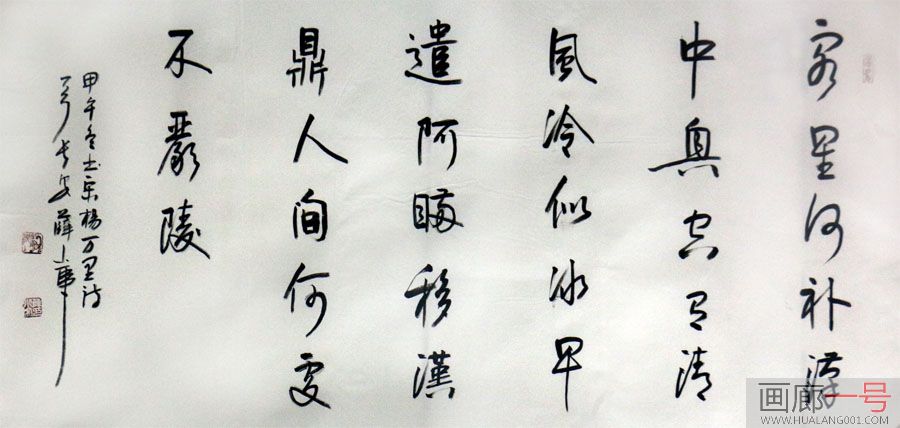 客星何补漢
中興空有清
風冷似冰早
遣阿瞞移漢
鼎人间何處
不嚴陵
甲午冬书宋楊万里诗
一首长安薛小軍
画廊一号
WWW.HUALANG001.COM